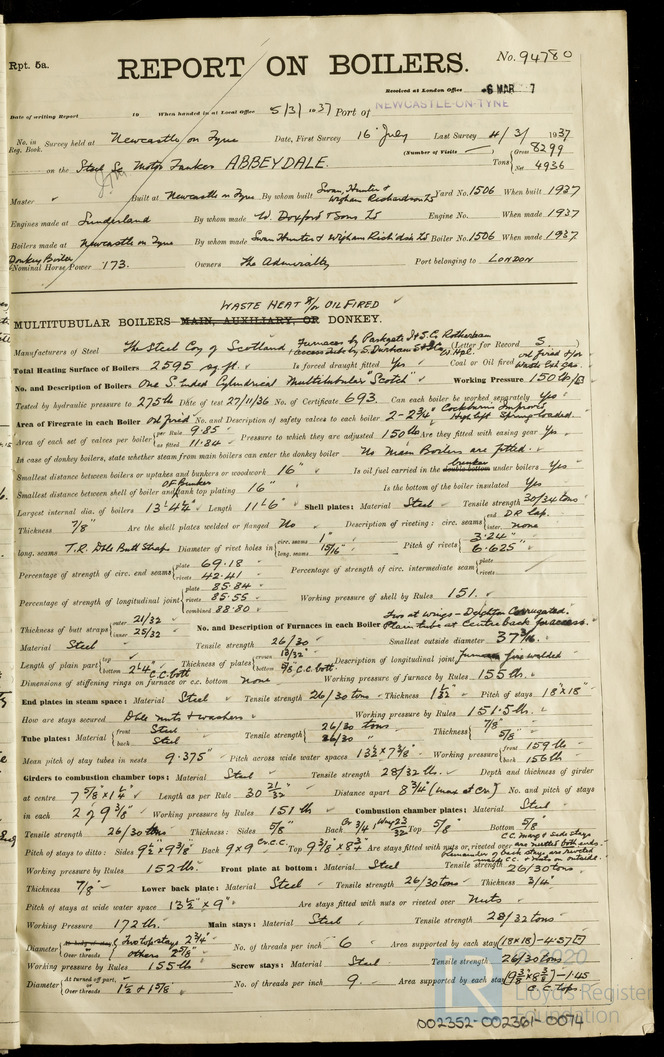 Rpt. 5a.
REPORT ON BOILERS.
No. 94780
Received at London Office 6 MAR 7
Date of writing Report 19 When handed in at Local Office 5/3/1937 Port of NEWCASTLE-ON-TYNE
No. in Reg. Book. Survey held at Newcastle on Tyne Date, First Survey 16 July Last Survey 4/3/1937
(Number of Visits
on the Steel Sc Motor Tanker ABBEYDALE. Tons { Gross 8299 Net 4936
Master Built at Newcastle on Tyne By whom built Swan, Hunter & Wigham Richardson Ld Yard No. 1506 When built 1937
Engines made at Sunderland By whom made W. Doxford & Sons Ld Engine No. When made 1937
Boilers made at Newcastle on Tyne By whom made Swan Hunter & Wigham Rich'dson Ld Boiler No. 1506 When made 1937
Donkey Boiler
Nominal Horse Power 173. Owners The Admiralty Port belonging to LONDON
WASTE HEAT &/or OIL FIRED
MULTITUBULAR BOILERS MAIN, AUXILIARY, OR DONKEY.
Manufacturers of Steel The Steel Coy of Scotland Furnaces by Parkgate I & S. Co Rotherham (Letter for Record S.)
Total Heating Surface of Boilers 2595 sq. ft. Is forced draught fitted Yes Coal or Oil fired oil fired &/or Waste Ext gas.
No. and Description of Boilers One S. Ended Cylindrical Multitubular Scotch Working Pressure 150 lb/□
Tested by hydraulic pressure to 275 lb Date of test 27/11/36 No. of Certificate 693. Can each boiler be worked separately Yes
Area of Firegrate in each Boiler oil fired No. and Description of safety valves to each boiler 2-2¾" Cockburns Improved High lift Spring loaded.
Area of each set of valves per boiler { per Rule 9.85 as fitted 11.84 Pressure to which they are adjusted 150 lb Are they fitted with easing gear Yes
In case of donkey boilers, state whether steam from main boilers can enter the donkey boiler No Main Boilers are fitted.
Smallest distance between boilers or uptakes and bunkers or woodwork 16" Is oil fuel carried in the double bottom bunker under boilers Yes
Smallest distance between shell of boiler and tank top plating OF Bunker 16" Is the bottom of the boiler insulated Yes
Largest internal dia. of boilers 13' 4½" Length 11' 6" Shell plates: Material Steel Tensile strength 30/34 tons
Thickness 7/8" Are the shell plates welded or flanged No Description of riveting: circ. seams { end D.R. lap. inter. none
long. seams T.R. Dble Butt Straps Diameter of rivet holes in { circ. seams 1" long. seams 15/16" Pitch of rivets { 3.24" 6.625"
Percentage of strength of circ. end seams { plate 69.18 rivets 42.41 Percentage of strength of circ. intermediate seam { plate rivets
Percentage of strength of longitudinal joint { plate 85.84 rivets 85.55 combined 88.80 Working pressure of shell by Rules 151.
Thickness of butt straps { outer 21/32 inner 25/32 No. and Description of Furnaces in each Boiler Two at wings - Deighton Corrugated. Plain tube at Centre back for access.
Material Steel Tensile strength 26/30 Smallest outside diameter 37 3/16
Length of plain part { top bottom 2' 4" C.C. bott Thickness of plates { crown 13/32" bottom 5/8 C.C. bott. Description of longitudinal joint fire welded
Dimensions of stiffening rings on furnace or c.c. bottom None. Working pressure of furnace by Rules 155 lb.
End plates in steam space: Material Steel Tensile strength 26/30 tons Thickness 1 1/32 Pitch of stays 18" x 18"
How are stays secured Dble nuts & washers Working pressure by Rules 151.5 lb.
Tube plates: Material { front Steel back Steel Tensile strength { 26/30 tons 26/30 " Thickness { 7/8" 5/8"
Mean pitch of stay tubes in nests 9.375" Pitch across wide water spaces 13½ x 7⅞" Working pressure { front 159 lb back 156 lb
Girders to combustion chamber tops: Material Steel Tensile strength 28/32 tns. Depth and thickness of girder
at centre 7⅝" x 1¼" Length as per Rule 30 21/32 Distance apart 8¾" (max at cr.) No. and pitch of stays
in each 2 @ 9⅜" Working pressure by Rules 151 lb Combustion chamber plates: Material Steel
Tensile strength 26/30 tons Thickness: Sides 5/8" Back Cr 3/4 Wing 23/32 Top 5/8 Bottom 5/8
Pitch of stays to ditto: Sides 9½" x 9⅜" Back 9 x 9 Cr. C.C. Top 9⅜ x 8¾" Are stays fitted with nuts or riveted over C.C. marg & side stays are nutted both ends. Remainder of back stays are riveted inside C.C. & nuts on outside.
Working pressure by Rules 152 lb. Front plate at bottom: Material Steel Tensile strength 26/30 tons
Thickness 7/8" Lower back plate: Material Steel Tensile strength 26/30 tons Thickness 3/4"
Pitch of stays at wide water space 13½" x 9" Are stays fitted with nuts or riveted over Nuts
Working Pressure 172 lb. Main stays: Material Steel Tensile strength 28/32 tons
Diameter { Two top stays 2¾" Over threads others 2⅝" No. of threads per inch 6 Area supported by each stay (18 x 18) - 4.57 □
Working pressure by Rules 155 lb Screw stays: Material Steel Tensile strength 26/30 tons
Diameter { At turned off part, or Over threads 1½ & 1⅝" No. of threads per inch 9. Area supported by each stay (9⅜ x 8¾) - 1.45 C.C. tops
2020
Lloyd's Register
Foundation
002352-002361-0074